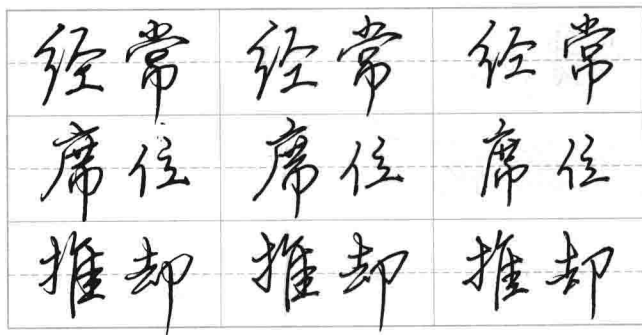 经常 经常 经常
席位 席位 席位
推却 推却 推却